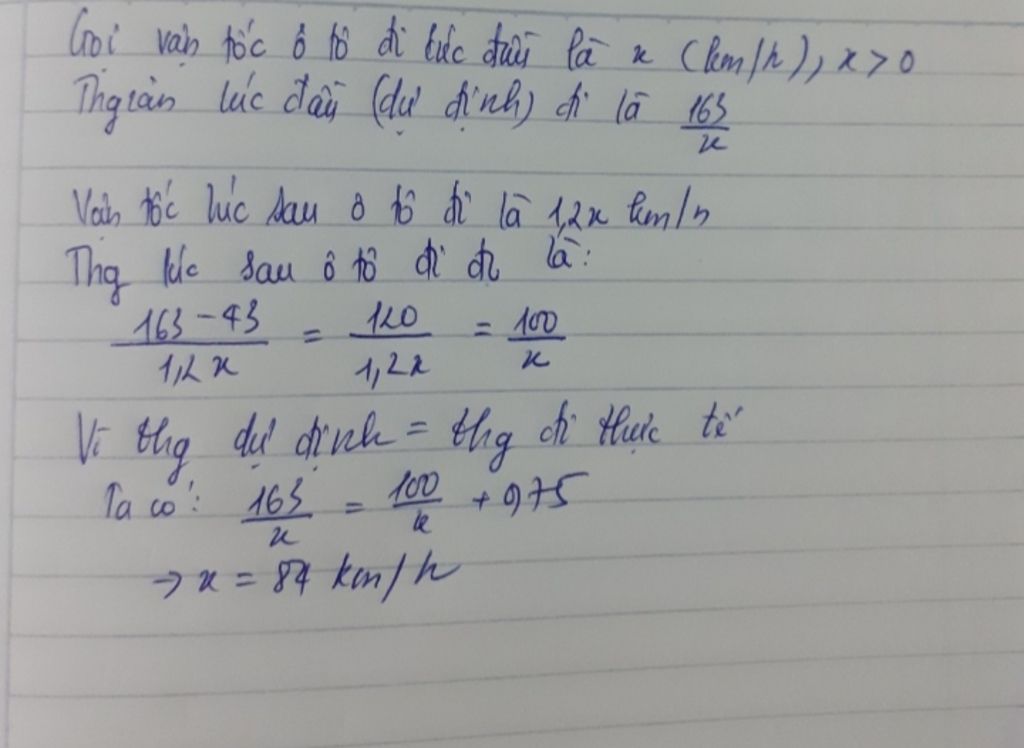 Gọi vận tốc ô tô đi lúc đầu là x (km/h), x > 0
Thgian lúc đầu (dự định) đi là 163/x
Vận tốc lúc sau ô tô đi là 1,2x km/h
Thg lúc sau ô tô đi là:
163 - 43 / 1,2x = 120 / 1,2x = 100 / x
Vì thg dự định = thg đi thực tế
Ta có: 163/x = 100/x + 0,75
→ x = 84 km/h